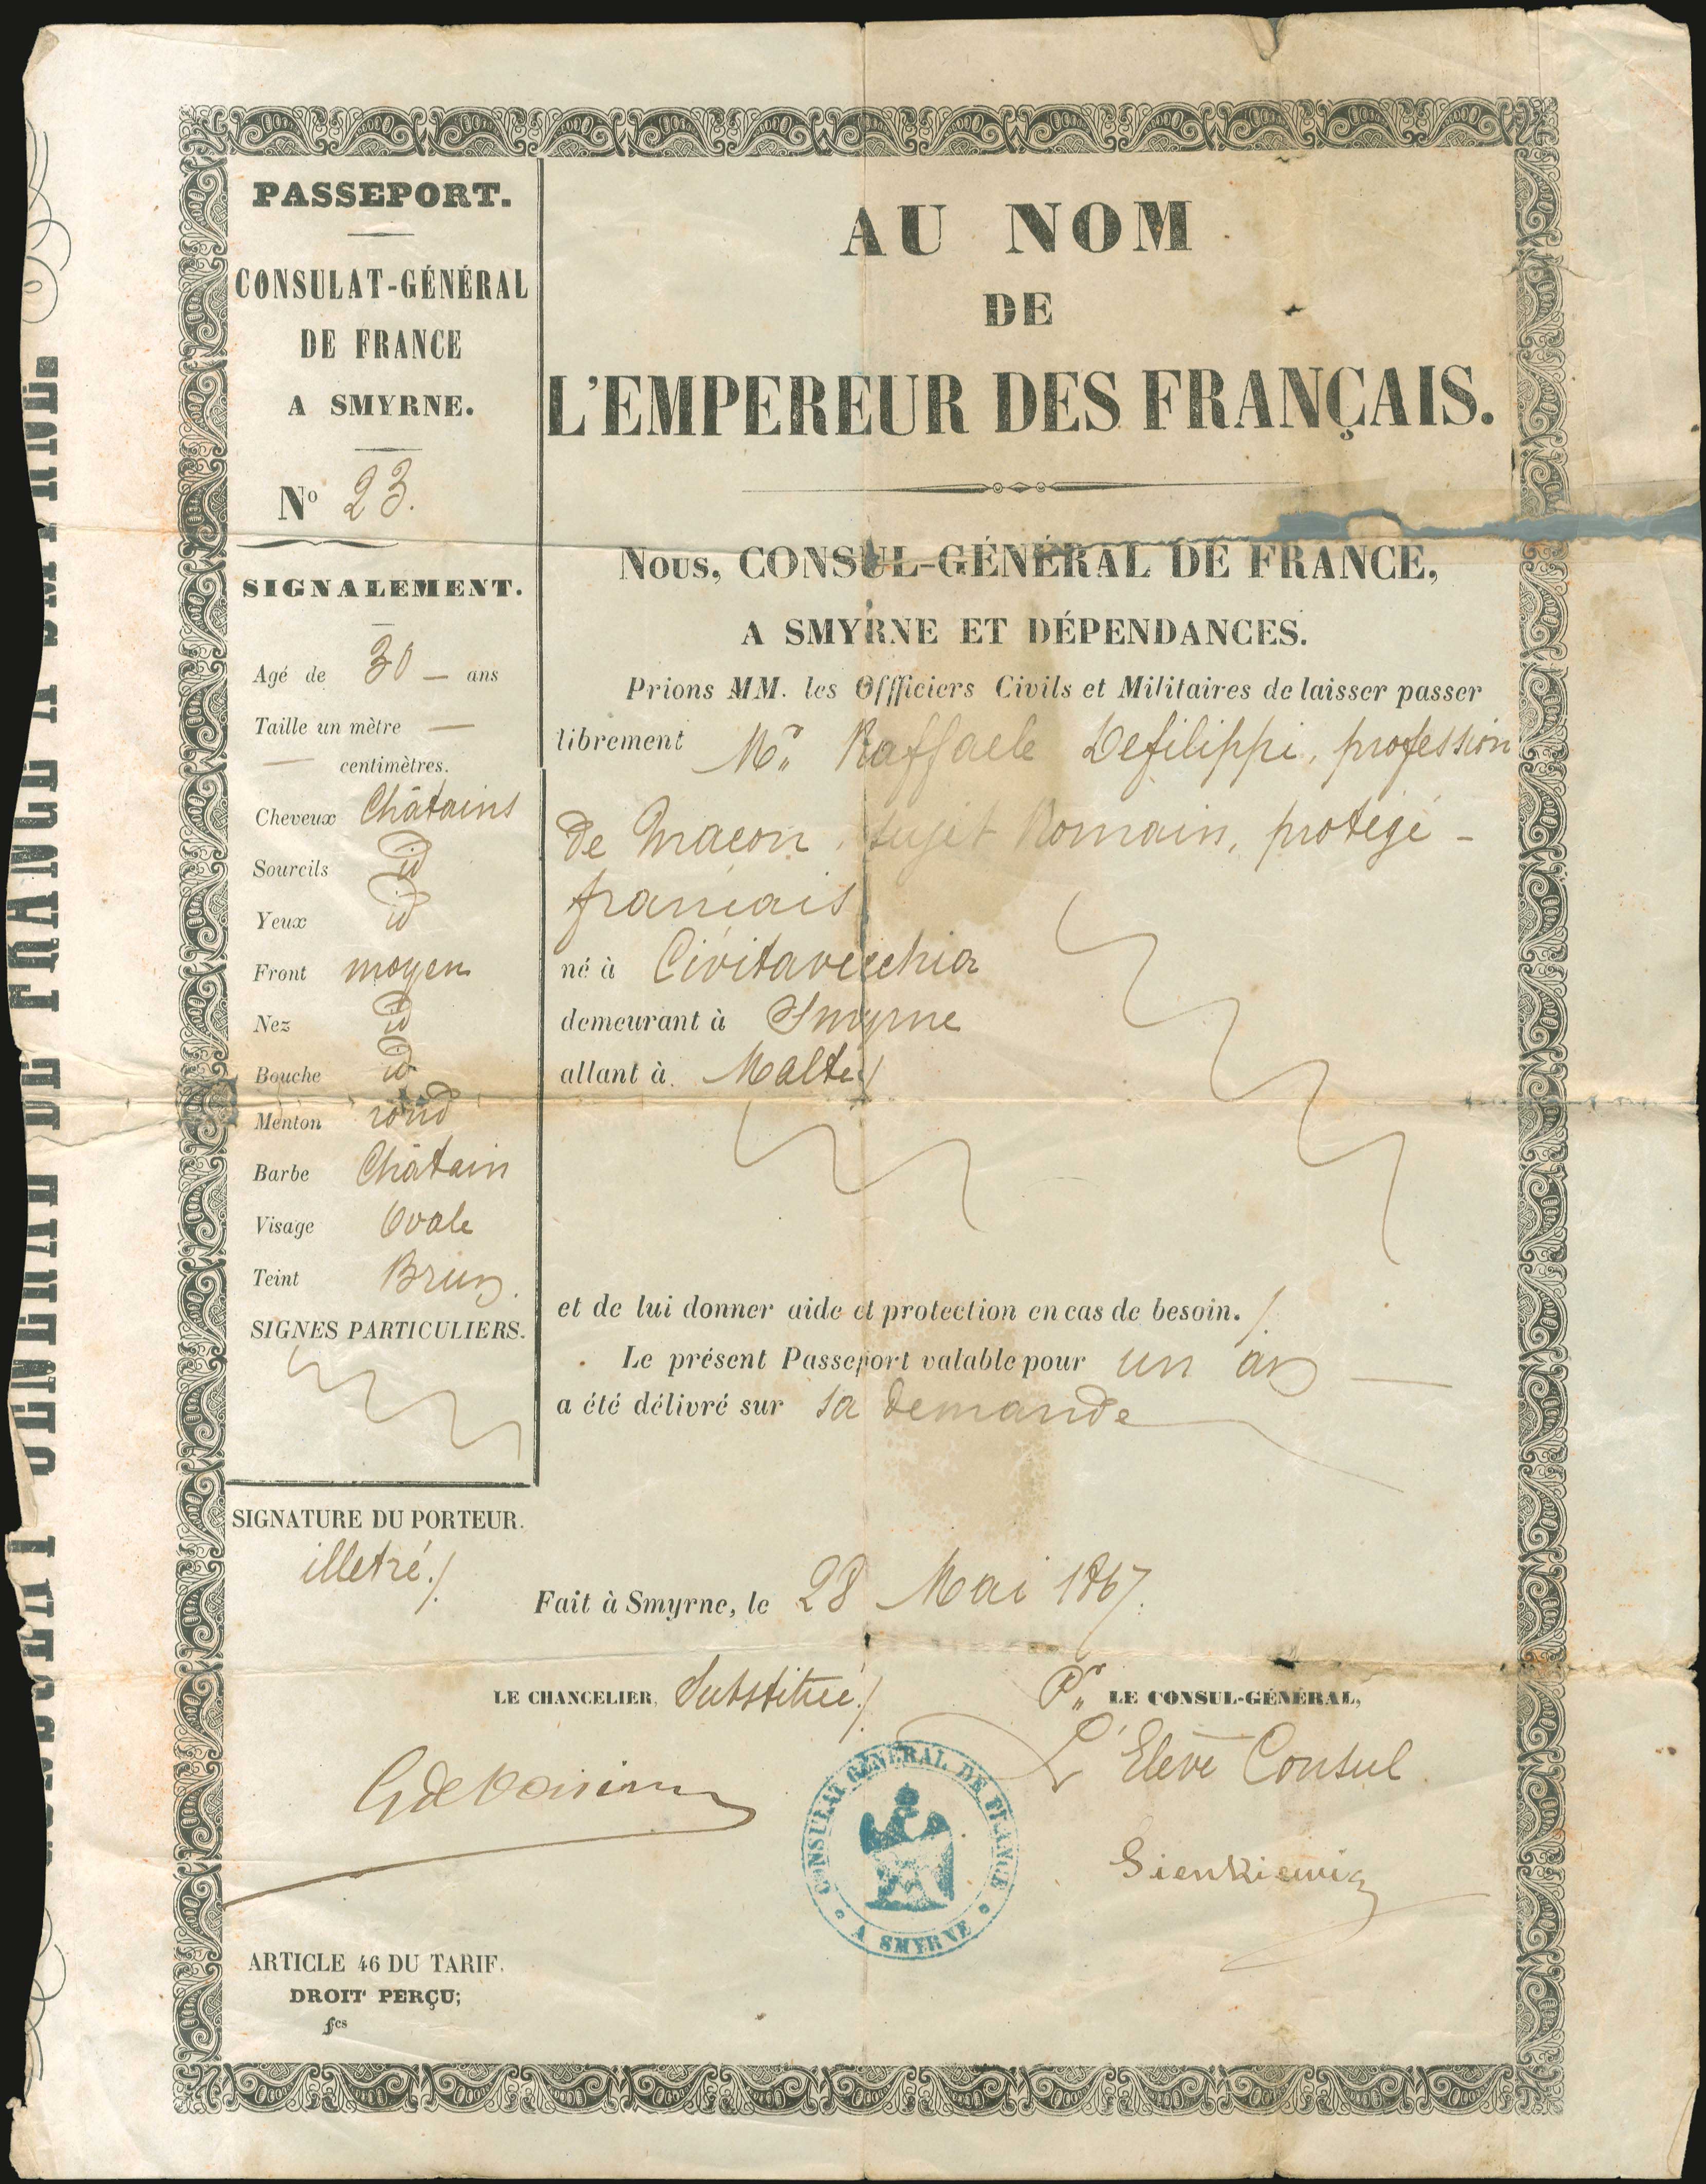 PASSEPORT.
CONSULAT-GÉNÉRAL
DE FRANCE
A SMYRNE.
Nº 23.
SIGNALEMENT.
Agé de 30 — ans
Taille un mètre —
— centimètres.
Cheveux Châtains
Sourcils id
Yeux id
Front moyen
Nez id
Bouche id
Menton rond
Barbe Châtain
Visage Ovale
Teint Brun.
SIGNES PARTICULIERS.
SIGNATURE DU PORTEUR.
illetré./.
AU NOM
DE
L'EMPEREUR DES FRANÇAIS.
Nous, CONSUL-GÉNÉRAL DE FRANCE,
A SMYRNE ET DÉPENDANCES.
Prions MM. les Offficiers Civils et Militaires de laisser passer
librement Mr. Raffaele Defilippi, profession
de Macon, sujet Romain, protégé -
francais
né à Civitavecchia
demeurant à Smyrne
allant à. Malte./
et de lui donner aide et protection en cas de besoin./.
Le présent Passeport valable pour un an —
a été délivré sur sa demande
Fait à Smyrne, le 28 Mai 1867.
LE CHANCELIER, Substitué./
Pr. LE CONSUL-GÉNÉRAL,
L'Elève Consul
Sienkiewicz
CONSULAT GÉNÉRAL DE FRANCE
A SMYRNE
ARTICLE 46 DU TARIF.
DROIT PERÇU;
fcs